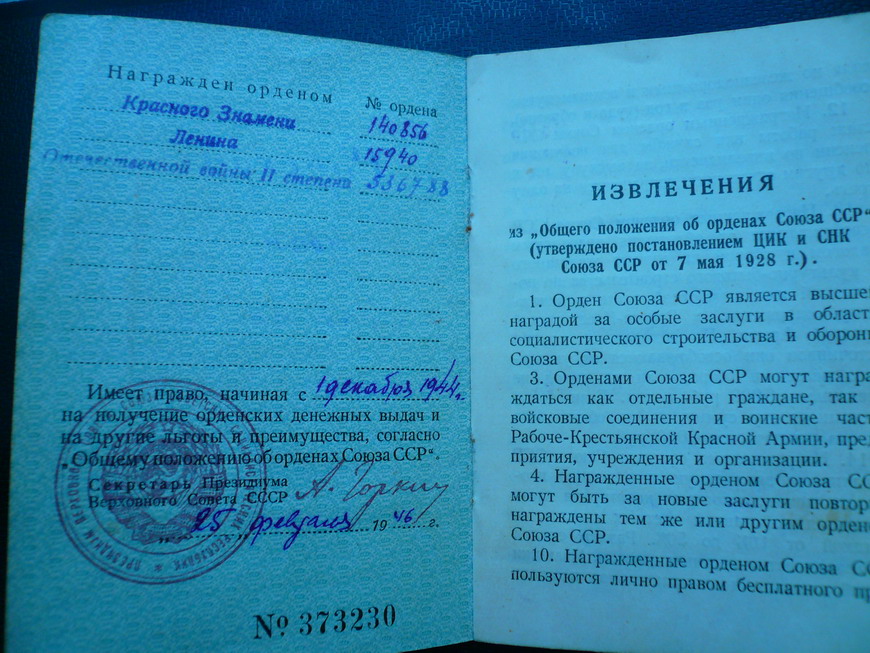 Награжден орденом
№ ордена
Красного Знамени 140856
Ленина 15940
Отечественной войны II степени 536788
Имеет право, начиная с 1 декабря 1944 г.
на получение орденских денежных выдач и
на другие льготы и преимущества, согласно
„Общему положению об орденах Союза ССР“.
Секретарь Президиума
Верховного Совета СССР А. Горкин
„25 февраля 1946 г.
№ 373230
ИЗВЛЕЧЕНИЯ
из „Общего положения об орденах Союза ССР“
(утверждено постановлением ЦИК и СНК
Союза ССР от 7 мая 1928 г.).
1. Орден Союза ССР является высше
наградой за особые заслуги в област
социалистического строительства и оборон
Союза ССР.
3. Орденами Союза ССР могут награ
ждаться как отдельные граждане, так
войсковые соединения и воинские част
Рабоче-Крестьянской Красной Армии, пре
приятия, учреждения и организации.
4. Награжденные орденом Союза СС
могут быть за новые заслуги повтор
награждены тем же или другим орден
Союза ССР.
10. Награжденные орденом Союза СС
пользуются лично правом бесплатного пр